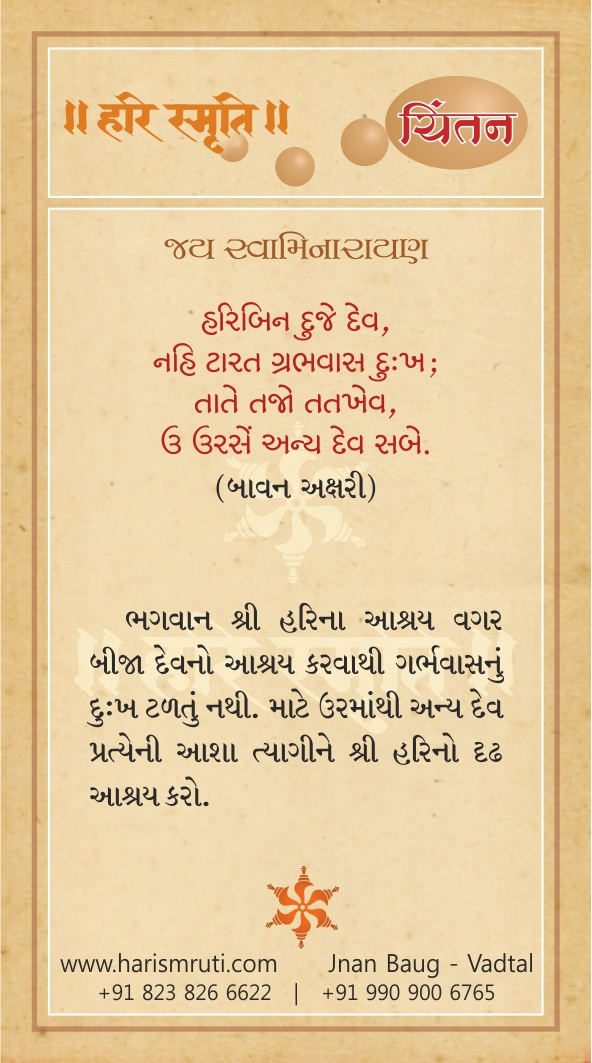 ॥ हरि स्मृति ॥
ચિંતન
જય સ્વામિનારાયણ
હરિબિન દુજે દેવ,
નહિ ટારત ગ્રભવાસ દુઃખ;
તાતે તજો તતખેવ,
ઉ ઉરસેં અન્ય દેવ સબે.
(બાવન અક્ષરી)
ભગવાન શ્રી હરિના આશ્રય વગર
બીજા દેવનો આશ્રય કરવાથી ગર્ભવાસનું
દુઃખ ટળતું નથી. માટે ઉરમાંથી અન્ય દેવ
પ્રત્યેની આશા ત્યાગીને શ્રી હરિનો દઢ
આશ્રય કરો.
www.harismruti.com Jnan Baug - Vadtal
+91 823 826 6622 | +91 990 900 6765